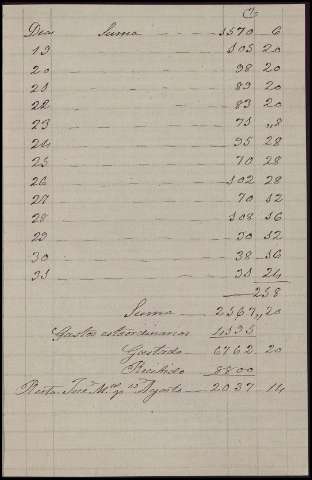 Dias Suma 1570 6
19 105 20
20 98 20
21 89 20
22 83 20
23 71 ,,8
24 95 28
25 70 28
26 102 28
27 70 12
28 108 16
29 30 12
30 38 16
31 31 24
258
Suma 2567,,20
Gastos estrordinarios 4195
Gastado 6762 20
Recibido 8800
Resta Agosto 2037 14